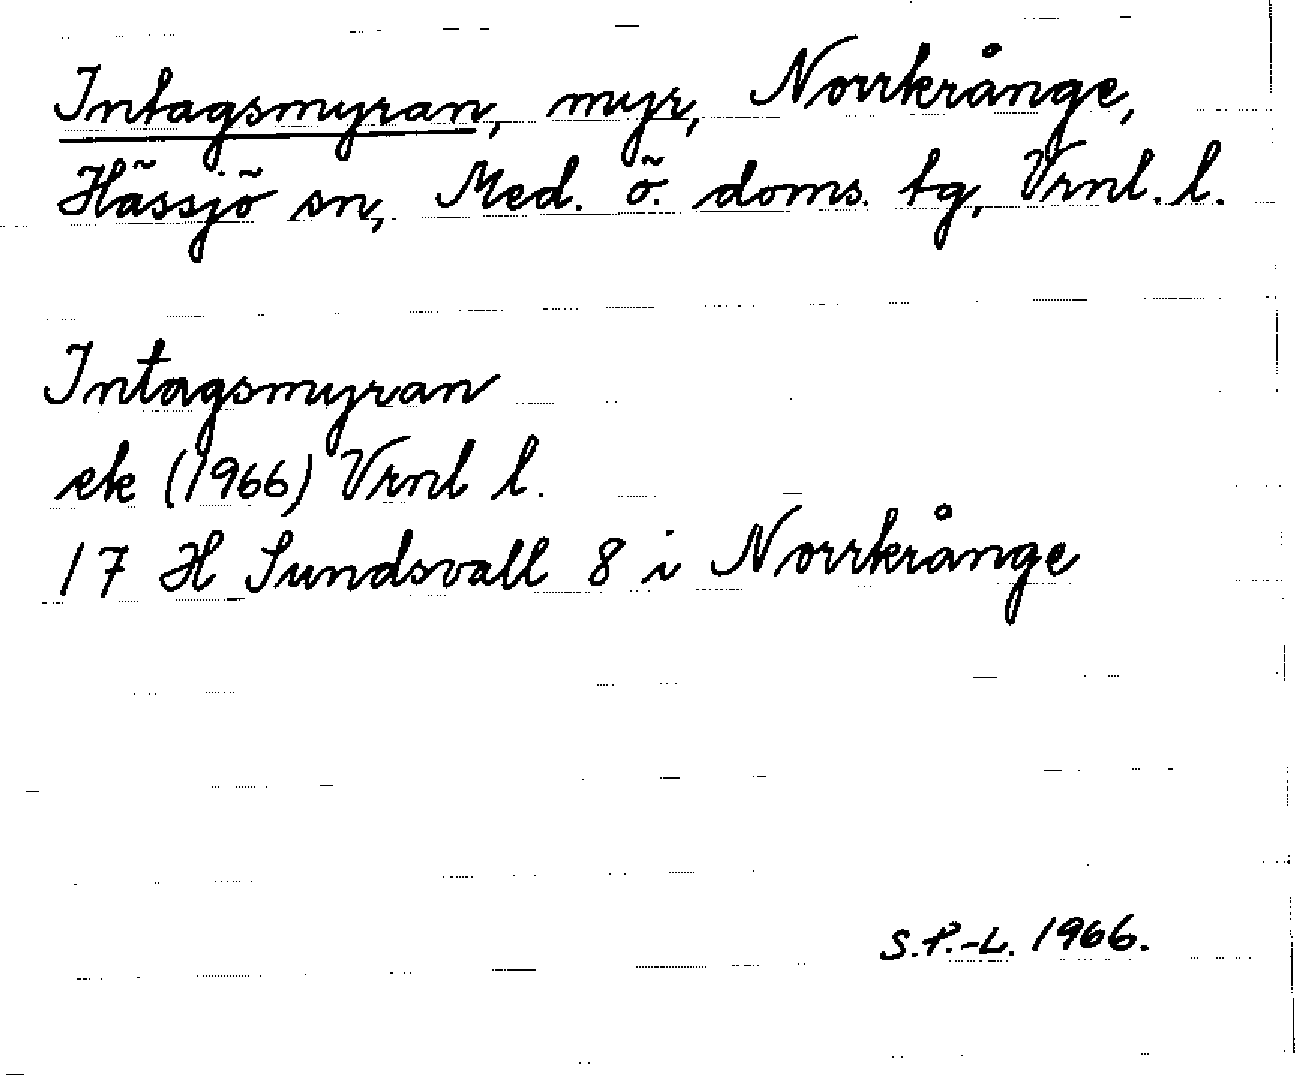 Intagsmyran, myr, Norrkrånge,
Hässjö sn, Med. ö. doms. tg, Vrnl. l.
Intagsmyran
ek (1966) Vrnl l.
17 H Sundsvall 8 i Norrkrånge
S.P.-L. 1966.